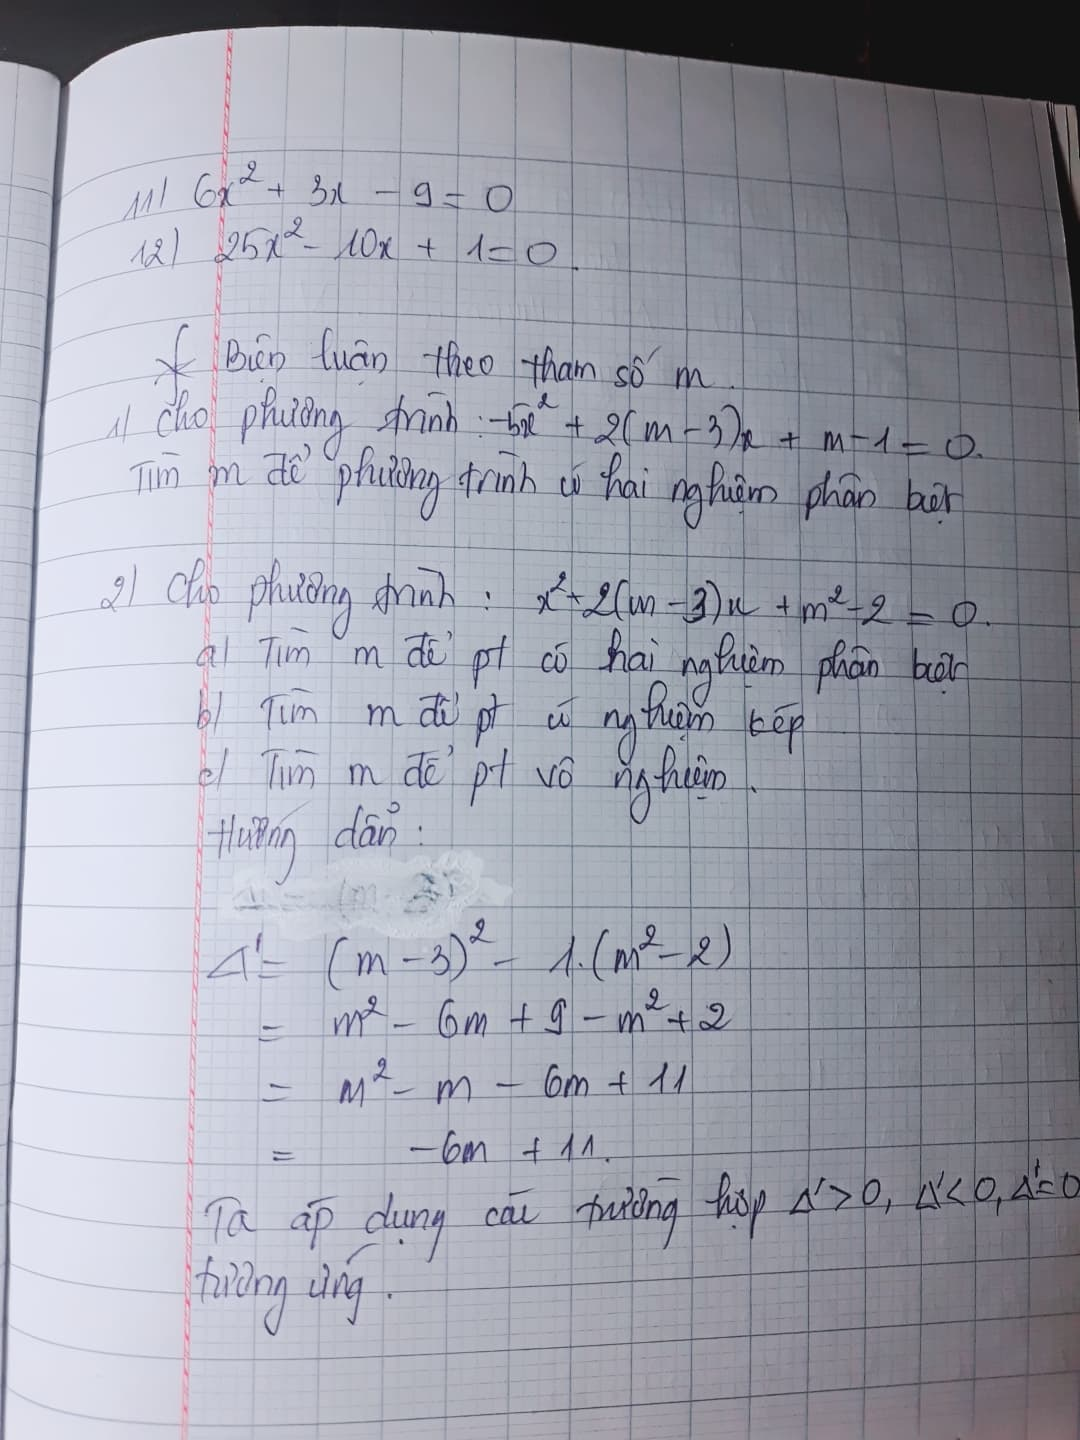 11) 6x² + 3x - 9 = 0
12) 25x² - 10x + 1 = 0.
* Biện luận theo tham số m.
1) Cho phương trình: -5x² + 2(m-3)x + m-1 = 0.
Tìm m để phương trình có hai nghiệm phân biệt
2) Cho phương trình: x² + 2(m-3)x + m² - 2 = 0.
a) Tìm m để pt có hai nghiệm phân biệt
b) Tìm m để pt có nghiệm kép
c) Tìm m để pt vô nghiệm.
Hướng dẫn:
Δ' = (m-3)² - 1.(m² - 2)
= m² - 6m + 9 - m² + 2
= m² - m - 6m + 11
= -6m + 11.
Ta áp dụng các trường hợp Δ' > 0, Δ' < 0, Δ' = 0
tương ứng.